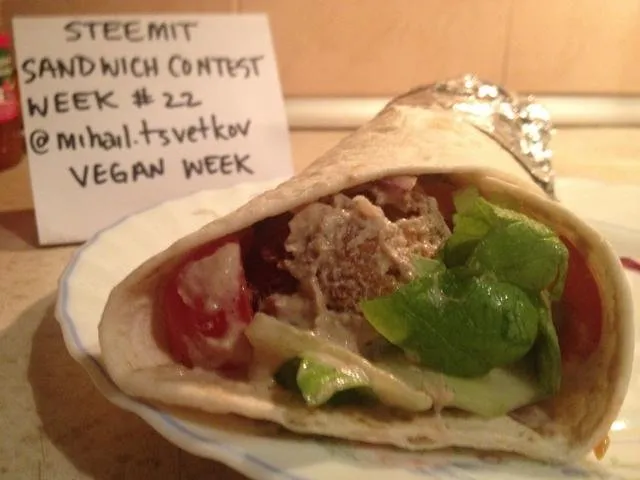 STEEMIT
SANDWICH CONTEST
WEEK # 22
@mihail.tsvetkov
VEGAN WEEK